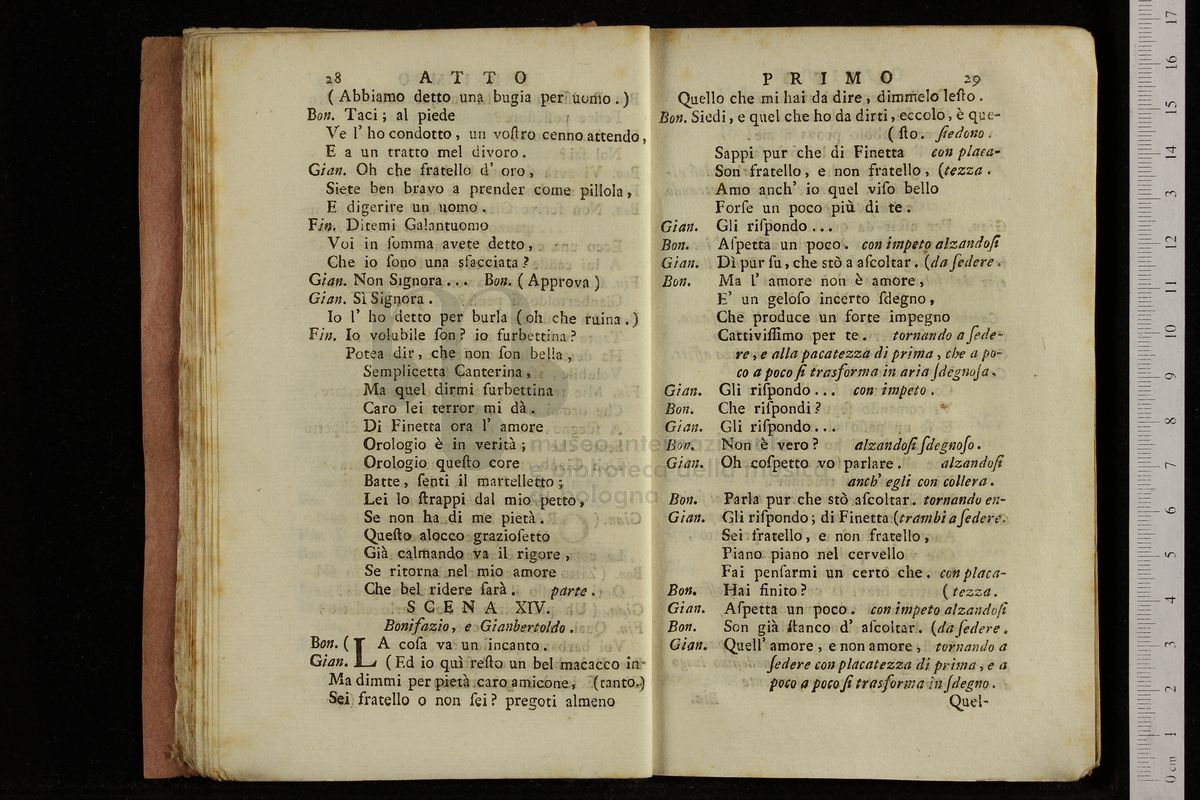 28 A T T O
( Abbiamo detto una bugia per uomo . )
Bon. Taci ; al piede
Ve l' ho condotto , un voſtro cenno attendo ,
E a un tratto mel divoro .
Gian. Oh che fratello d' oro ,
Siete ben bravo a prender come pillola ,
E digerire un uomo .
Fin. Ditemi Galantuomo
Voi in ſomma avete detto ,
Che io ſono una sfacciata ?
Gian. Non Signora . . . Bon. ( Approva )
Gian. Sì Signora .
Io l' ho detto per burla ( oh che ruina . )
Fin. Io volubile ſon ? io furbettina ?
Potea dir , che non ſon bella ,
Semplicetta Canterina ,
Ma quel dirmi furbettina
Caro lei terror mi dà .
Di Finetta ora l' amore
Orologio è in verità ;
Orologio queſto core
Batte , ſenti il martelletto ;
Lei lo ſtrappi dal mio petto ,
Se non ha di me pietà .
Queſto alocco grazioſetto
Già calmando va il rigore ,
Se ritorna nel mio amore
Che bel ridere farà . parte .
S C E N A XIV.
Bonifazio, e Gianbertoldo .
Bon. ( L A coſa va un incanto .
Gian. ( Ed io quì reſto un bel macacco in-
Ma dimmi per pietà caro amicone , (tanto.)
Sei fratello o non ſei ? pregoti almeno
P R I M O 29
Quello che mi hai da dire , dimmelo leſto .
Bon. Siedi , e quel che ho da dirti , eccolo , è que-
( ſto . ſiedono .
Sappi pur che di Finetta con placa-
Son fratello , e non fratello , (tezza .
Amo anch' io quel viſo bello
Forſe un poco più di te .
Gian. Gli riſpondo . . .
Bon. Aſpetta un poco . con impeto alzandoſi
Gian. Dì pur ſu , che stò a aſcoltar . (da ſedere .
Bon. Ma l' amore non è amore ,
E' un geloſo incerto ſdegno ,
Che produce un forte impegno
Cattiviſſimo per te . tornando a ſede-
re , e alla pacatezza di prima , che a po-
co a poco ſi trasforma in aria ſdegnoſa .
Gian. Gli riſpondo . . . con impeto .
Bon. Che riſpondi ?
Gian. Gli riſpondo . . .
Bon. Non è vero ? alzandoſi ſdegnoſo .
Gian. Oh coſpetto vo parlare . alzandoſi
anch' egli con collera .
Bon. Parla pur che stò aſcoltar . tornando en-
Gian. Gli riſpondo ; di Finetta (trambi a ſedere.
Sei fratello , e non fratello ,
Piano piano nel cervello
Fai penſarmi un certo che . con placa-
Bon. Hai finito ? ( tezza .
Gian. Aſpetta un poco . con impeto alzandoſi
Bon. Son già ſtanco d' aſcoltar . (da ſedere .
Gian. Quell' amore , e non amore , tornando a
ſedere con placatezza di prima , e a
poco a poco ſi trasforma in ſdegno .
Quel-
museo internazionale
e biblioteca della musica
di bologna
0 cm 1 2 3 4 5 6 7 8 9 10 11 12 13 14 15 16 17